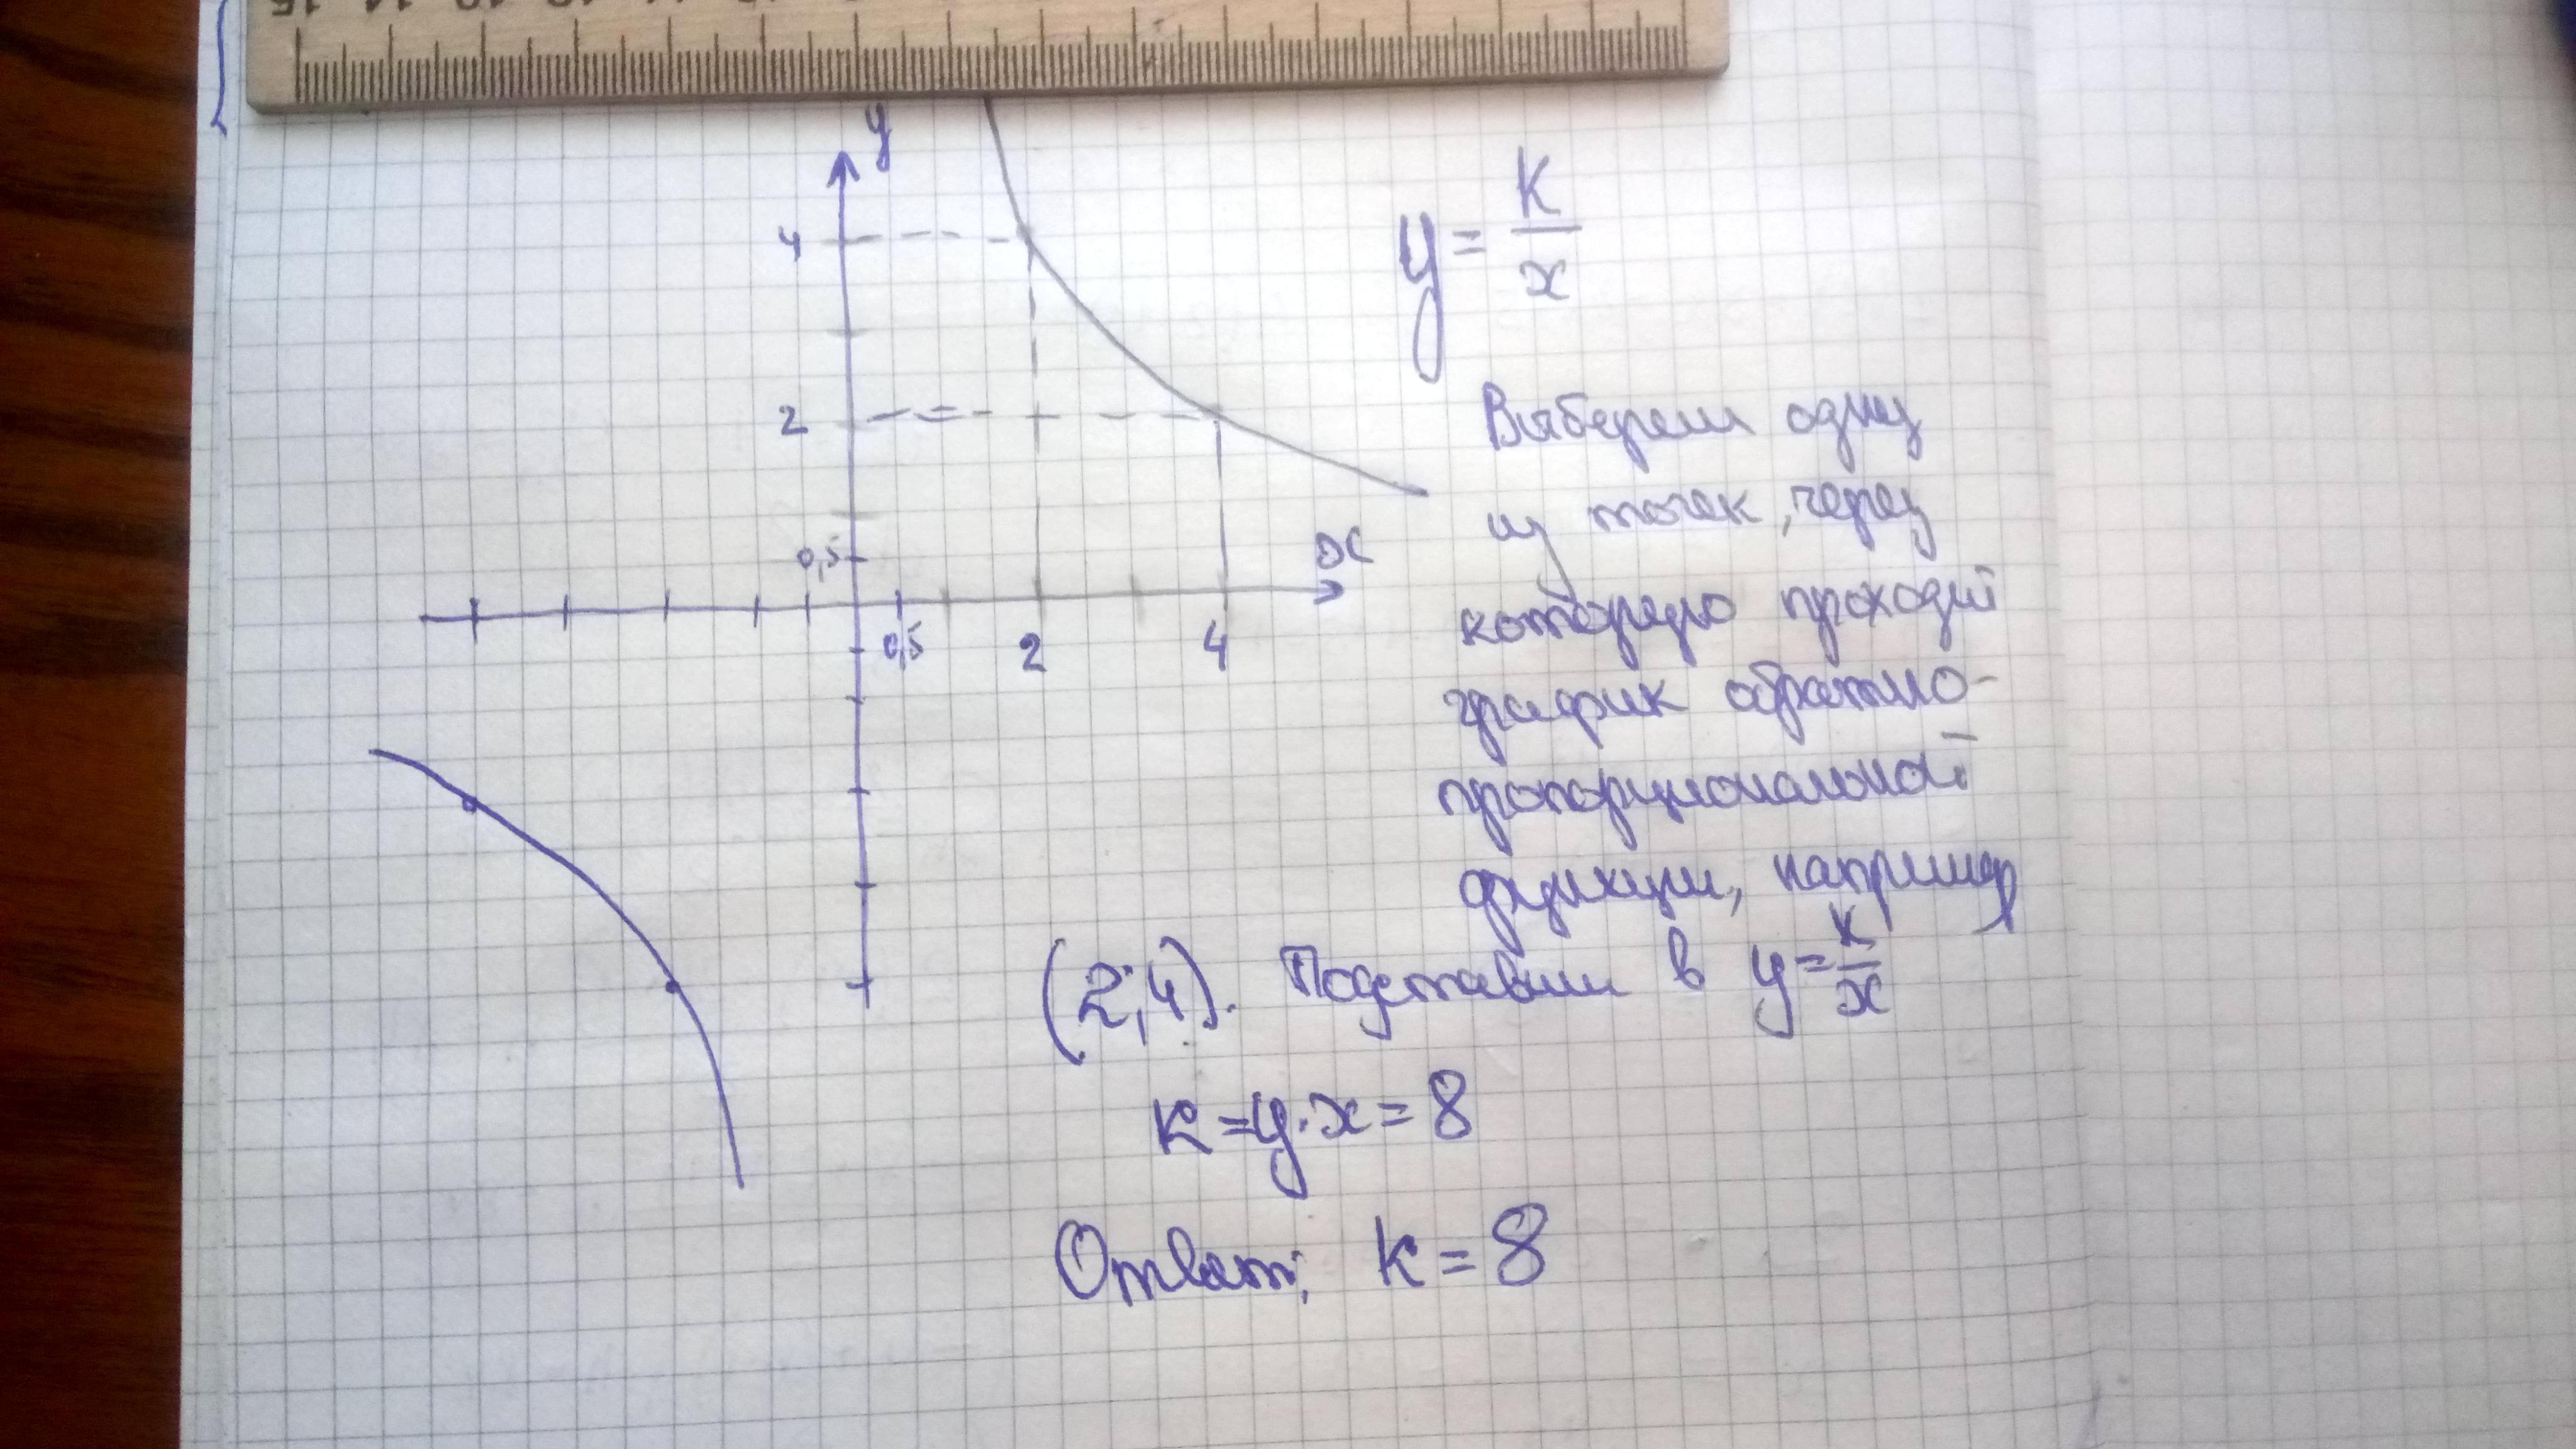 y
4
2
0,5
x
0,5
2
4
y = k/x
Выберем одну
из точек, через
которую проходит
график обратно-
пропорциональной
функции, например
(2;4). Подставим в y=k/x
k=y·x=8
Ответ: k=8